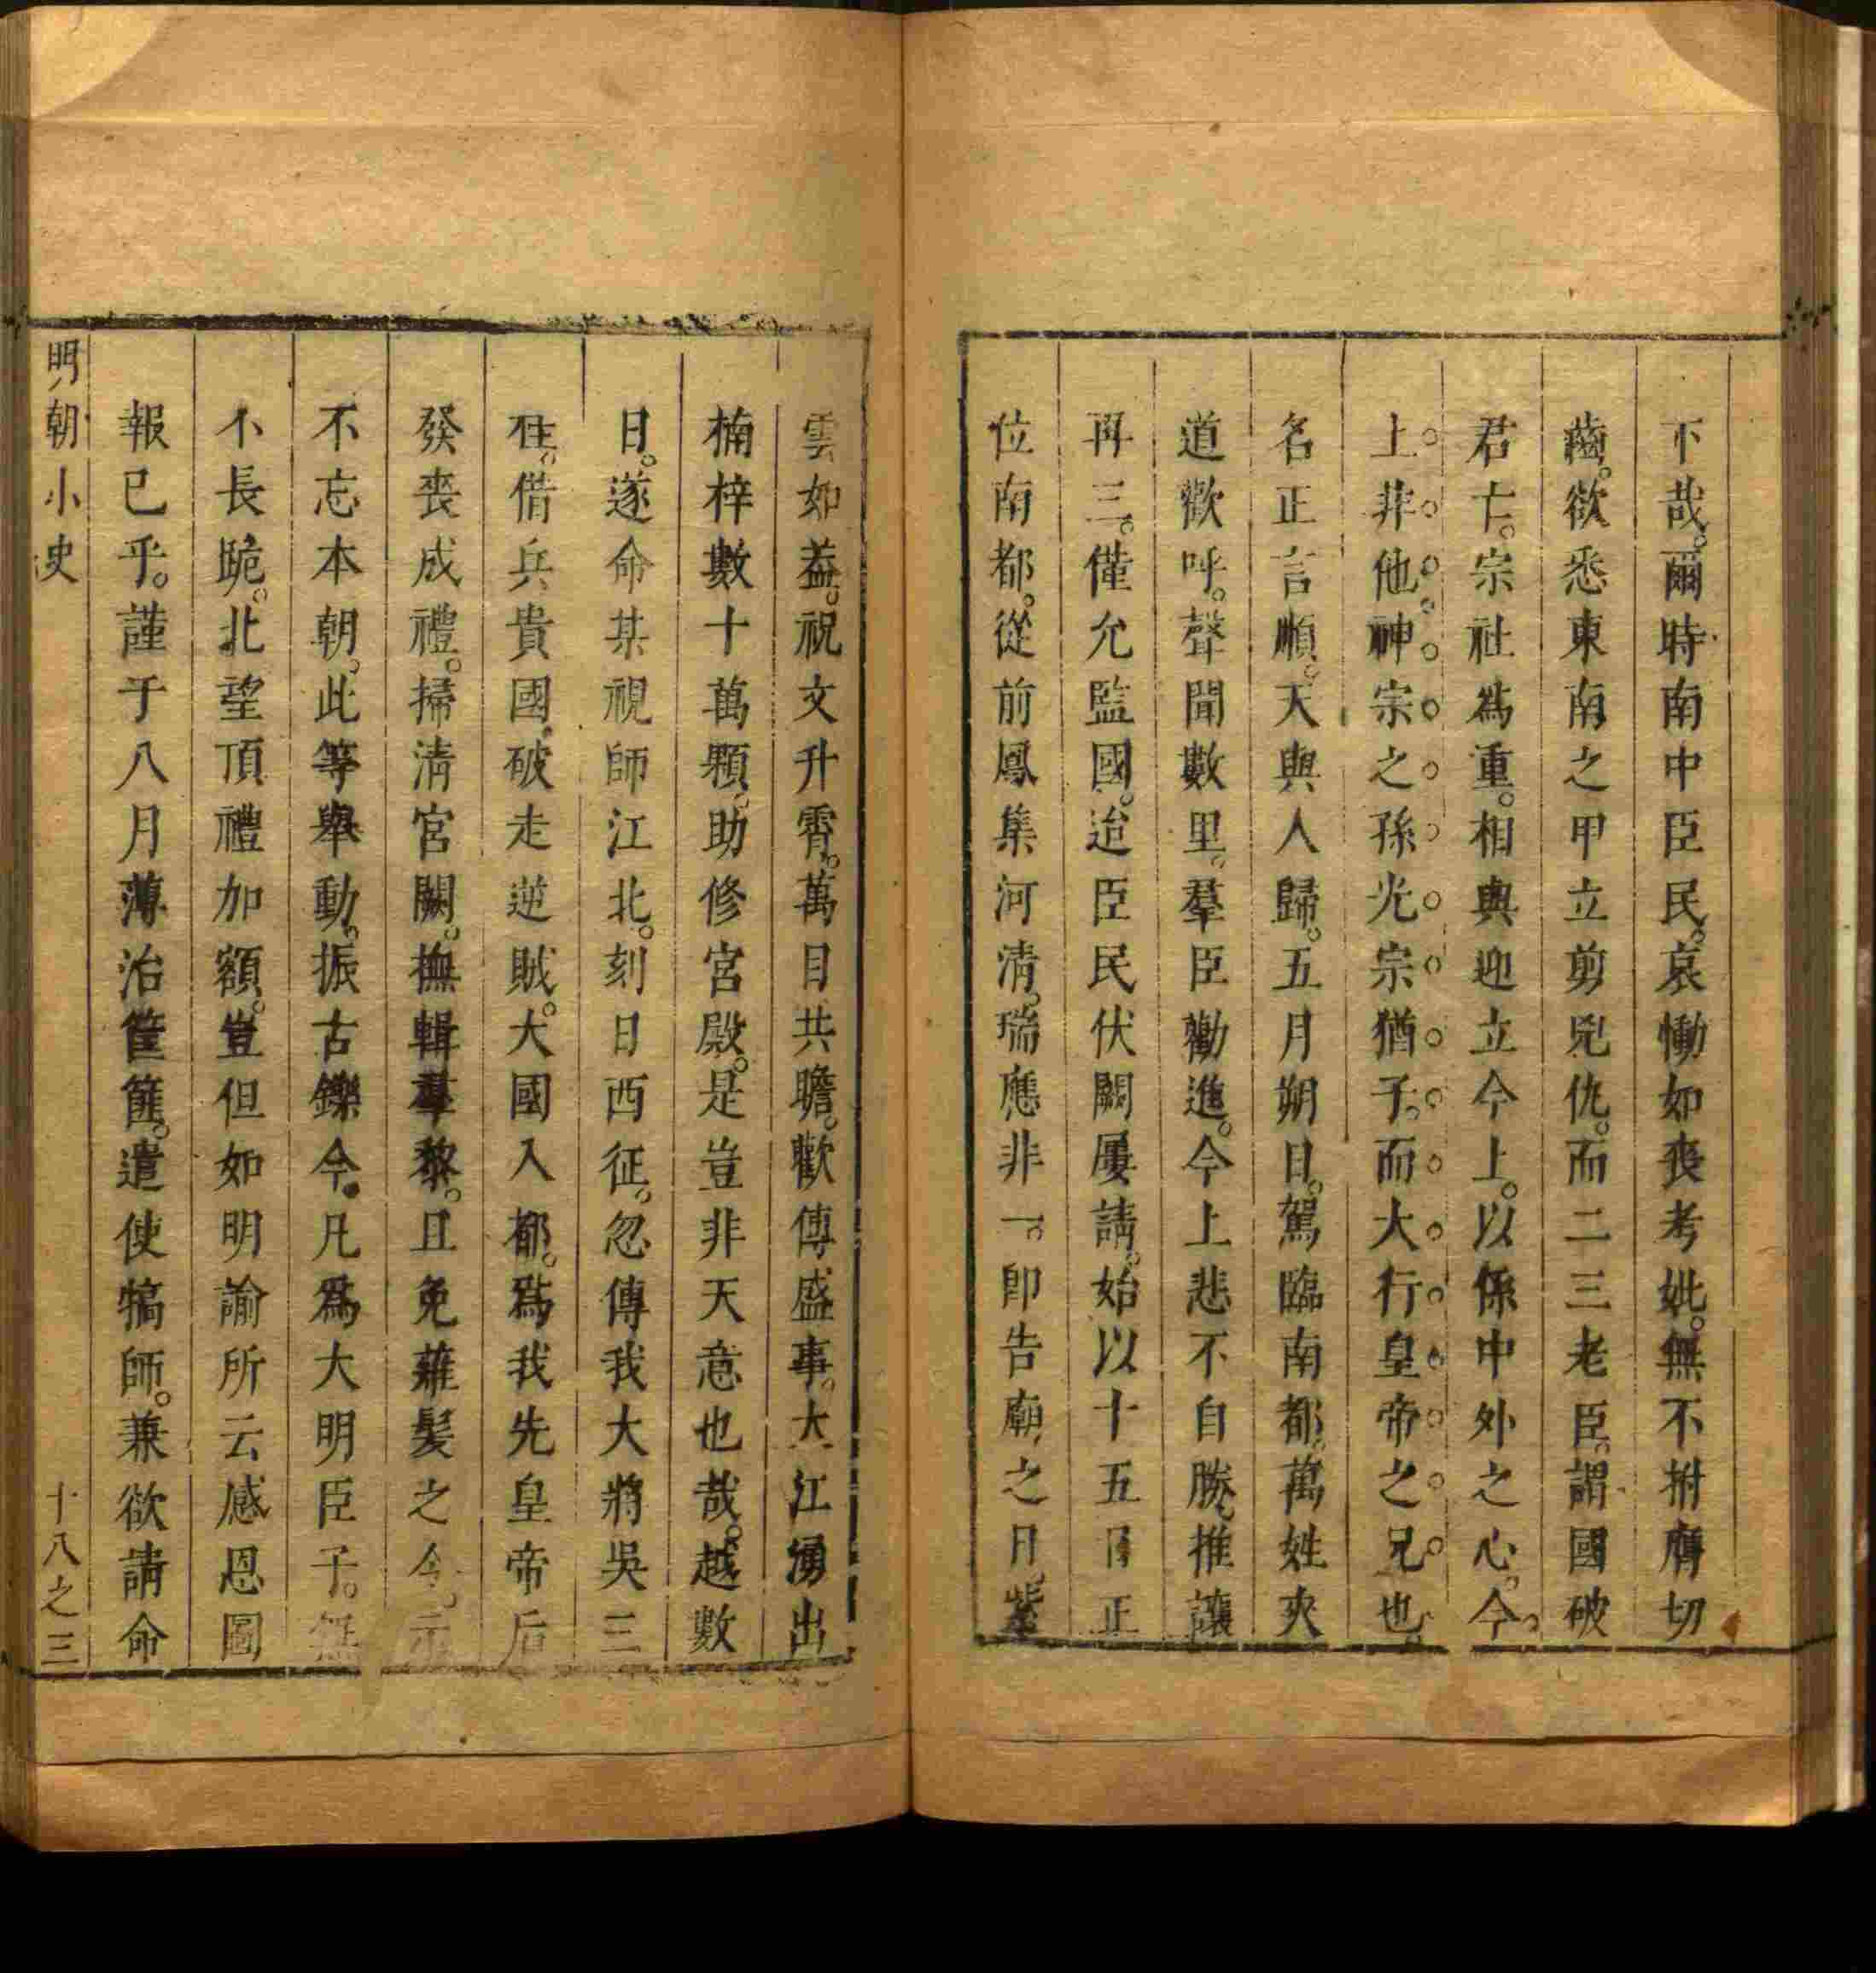 下哉。爾時南中臣民。哀慟如喪考妣。無不拊膺切
齒。欲悉東南之甲立剪兇仇。而二三老臣。謂國破
君亡。宗社爲重。相與迎立今上。以係中外之心。今
上非他神宗之孫光宗猶子。而大行皇帝之兄也。
名正言順。天與人歸。五月朔日。駕臨南都。萬姓夾
道歡呼。聲聞數里。羣臣勸進。今上悲不自勝。推讓
再三。僅允監國。迨臣民伏闕屢請。始以十五日正
位南都。從前鳳集河清。瑞應非一。即告廟之日。紫
雲如葢。祝文升霄。萬目共瞻。歡傳盛事。大江湧出
楠梓數十萬顆。助修宮殿。是豈非天意也哉。越數
日。遂命某視師江北。刻日西征。忽傳我大將吳三
桂。借兵貴國。破走逆賊。大國入都。爲我先皇帝后
發喪成禮。掃清宮闕。撫輯羣黎。且免薙髮之令。示
不忘本朝。此等舉動。振古鑠今。凡爲大明臣子。無
不長跪。北望頂禮加額。豈但如明諭所云感恩圖
報已乎。謹于八月薄治筐篚。遣使犒師。兼欲請命
明朝小史
十八之三